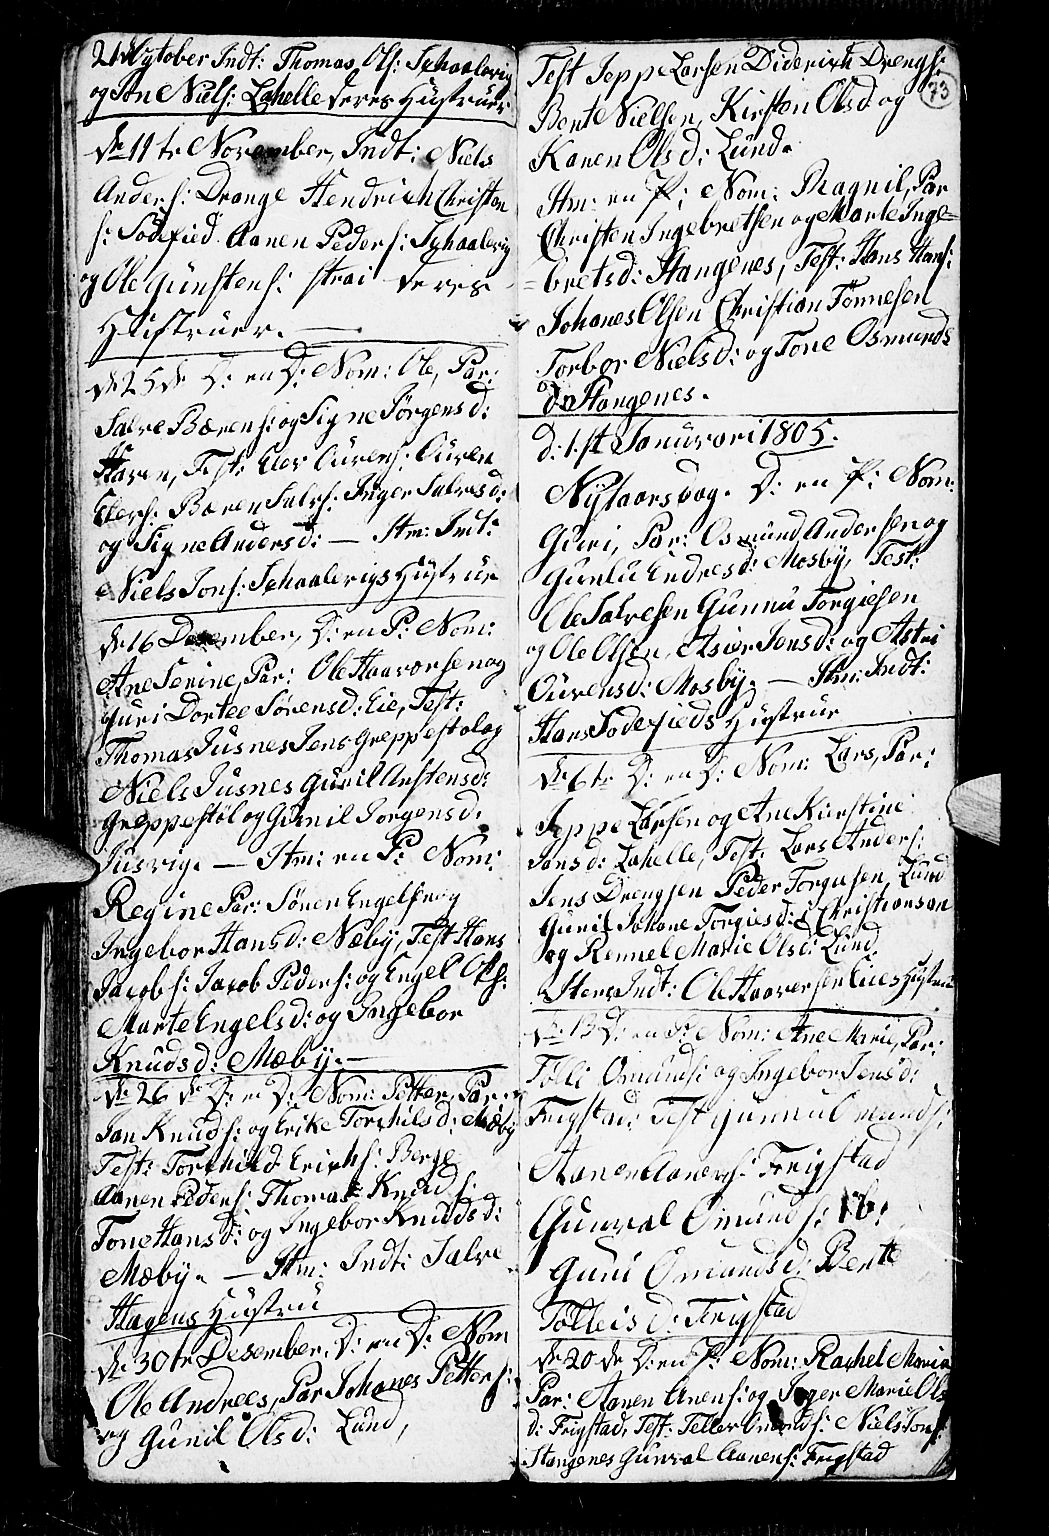 21de October Indt: Thomas Ols: Schaalevig
og Jon Niels: Lahelle deres Hustruer
de 11te November, Indt: Niels
Anders: Drange Hendrich Christen
s: Sødefied Aanen Peders: Schaalevig
og Ole Gunstens: Strai deres
Hustruer.
de 25de D: en D: Nom: Ole, Par:
Salve Bærens: og Signe Jørgensd:
Haven, Test: Elev Ourens: Ouren
Elevs: Bæren Salvs: Inger Salvesd:
og Signe Andersd: — Itm: Indt:
Niels Jons: Schaalevigs Hustrue
de 16 Desember, D: en P: Nom:
Ane Serine, Par: Ole Haavorsen og
Guri Dortee Sørensd: Eie, Test:
Thomas Jusnes Jens Greppestol og
Niels Jusnes Gunil Anstensd:
Greppestøl og Gunil Jorgensd.
Jusvig. — Itm: en P: Nom:
Regine Par: Sönen Engelsen og
Ingebor Hansd: Næby, Test Hans
Jacobs: Jacob Peders: og Engel Ols:
Marte Engelsd: og Ingebor
Knudsd: Mæby. —
de 26de D: en D: Nom: Petter, Par:
Jan Knuds: og Erike Torkilsd: Mæby
Test: Torchild Erichs: Berge
Aanen Peders: Thomas Knuds:
Tone Hansd: og Ingebor Knudsd:
Mæby. — Itm: Indt: Salve
Hagens Hustru
de 30te Desember. D: en D: Nom
Ole Andrees, Par Johanes Petters:
og Gunil Olsd: Lund,
73
Test Jeppe Larsen Diderich Drengs:
Bent Nielsen, Kirsten Olsd og
Karen Olsd: Lund.
Itm: en P: Nom: Ragnil, Par
Christen Ingebretsen og Marte Inge=
=bretsd: Stangenes, Test: Hans Hans:
Johanes Olsen Christian Tønnesen
Torbor Nielsd: og Tone Osmunds
d: Stangenes.
d: 1st Januvari 1805.
Nytaarsdag. D: en P: Nom:
Guri, Par: Osmund Andersen og
Gunlu Endresd: Mosby, Test:
Ole Salvesen Gunnu Torgiesen
og Ole Olsen, Asier Jonsd: og Astri
Ourensd: Mosby. — Itm: Indt:
Hans Sodefieds Hustrue
de 6te D: en D: Nom: Lars, Par:
Jeppe Larsen og Ane Kirstine
Jansd: Lahelle, Test: Lars Anders:
Jens Drengsen Peder Torgusen Lund
Gunil Johane Torgiesd: Christiansan
og Rennel Marie Olsd: Lund.
Item Indt: Ole Haaversen Eies Hustrue
de 13 D: en P: Nom: Ane Marie, Par:
Tolli Omunds: og Ingebor Jensd:
Frigstad: Test Gunnu Omunds:
Aanen Aanens: Frigstad
Gunval Omunds: ib:
Guni Omundsd: Bente
Tolleisd: Frigstad
de 20de D: en P: Nom: Rachel Marie
Par: Aanen Anens: og Inger Marie Ols
d: Frigstad, Test: Tellev Omunds: Niels Jons:
Stangenes Gunval Aanens: Frigstad